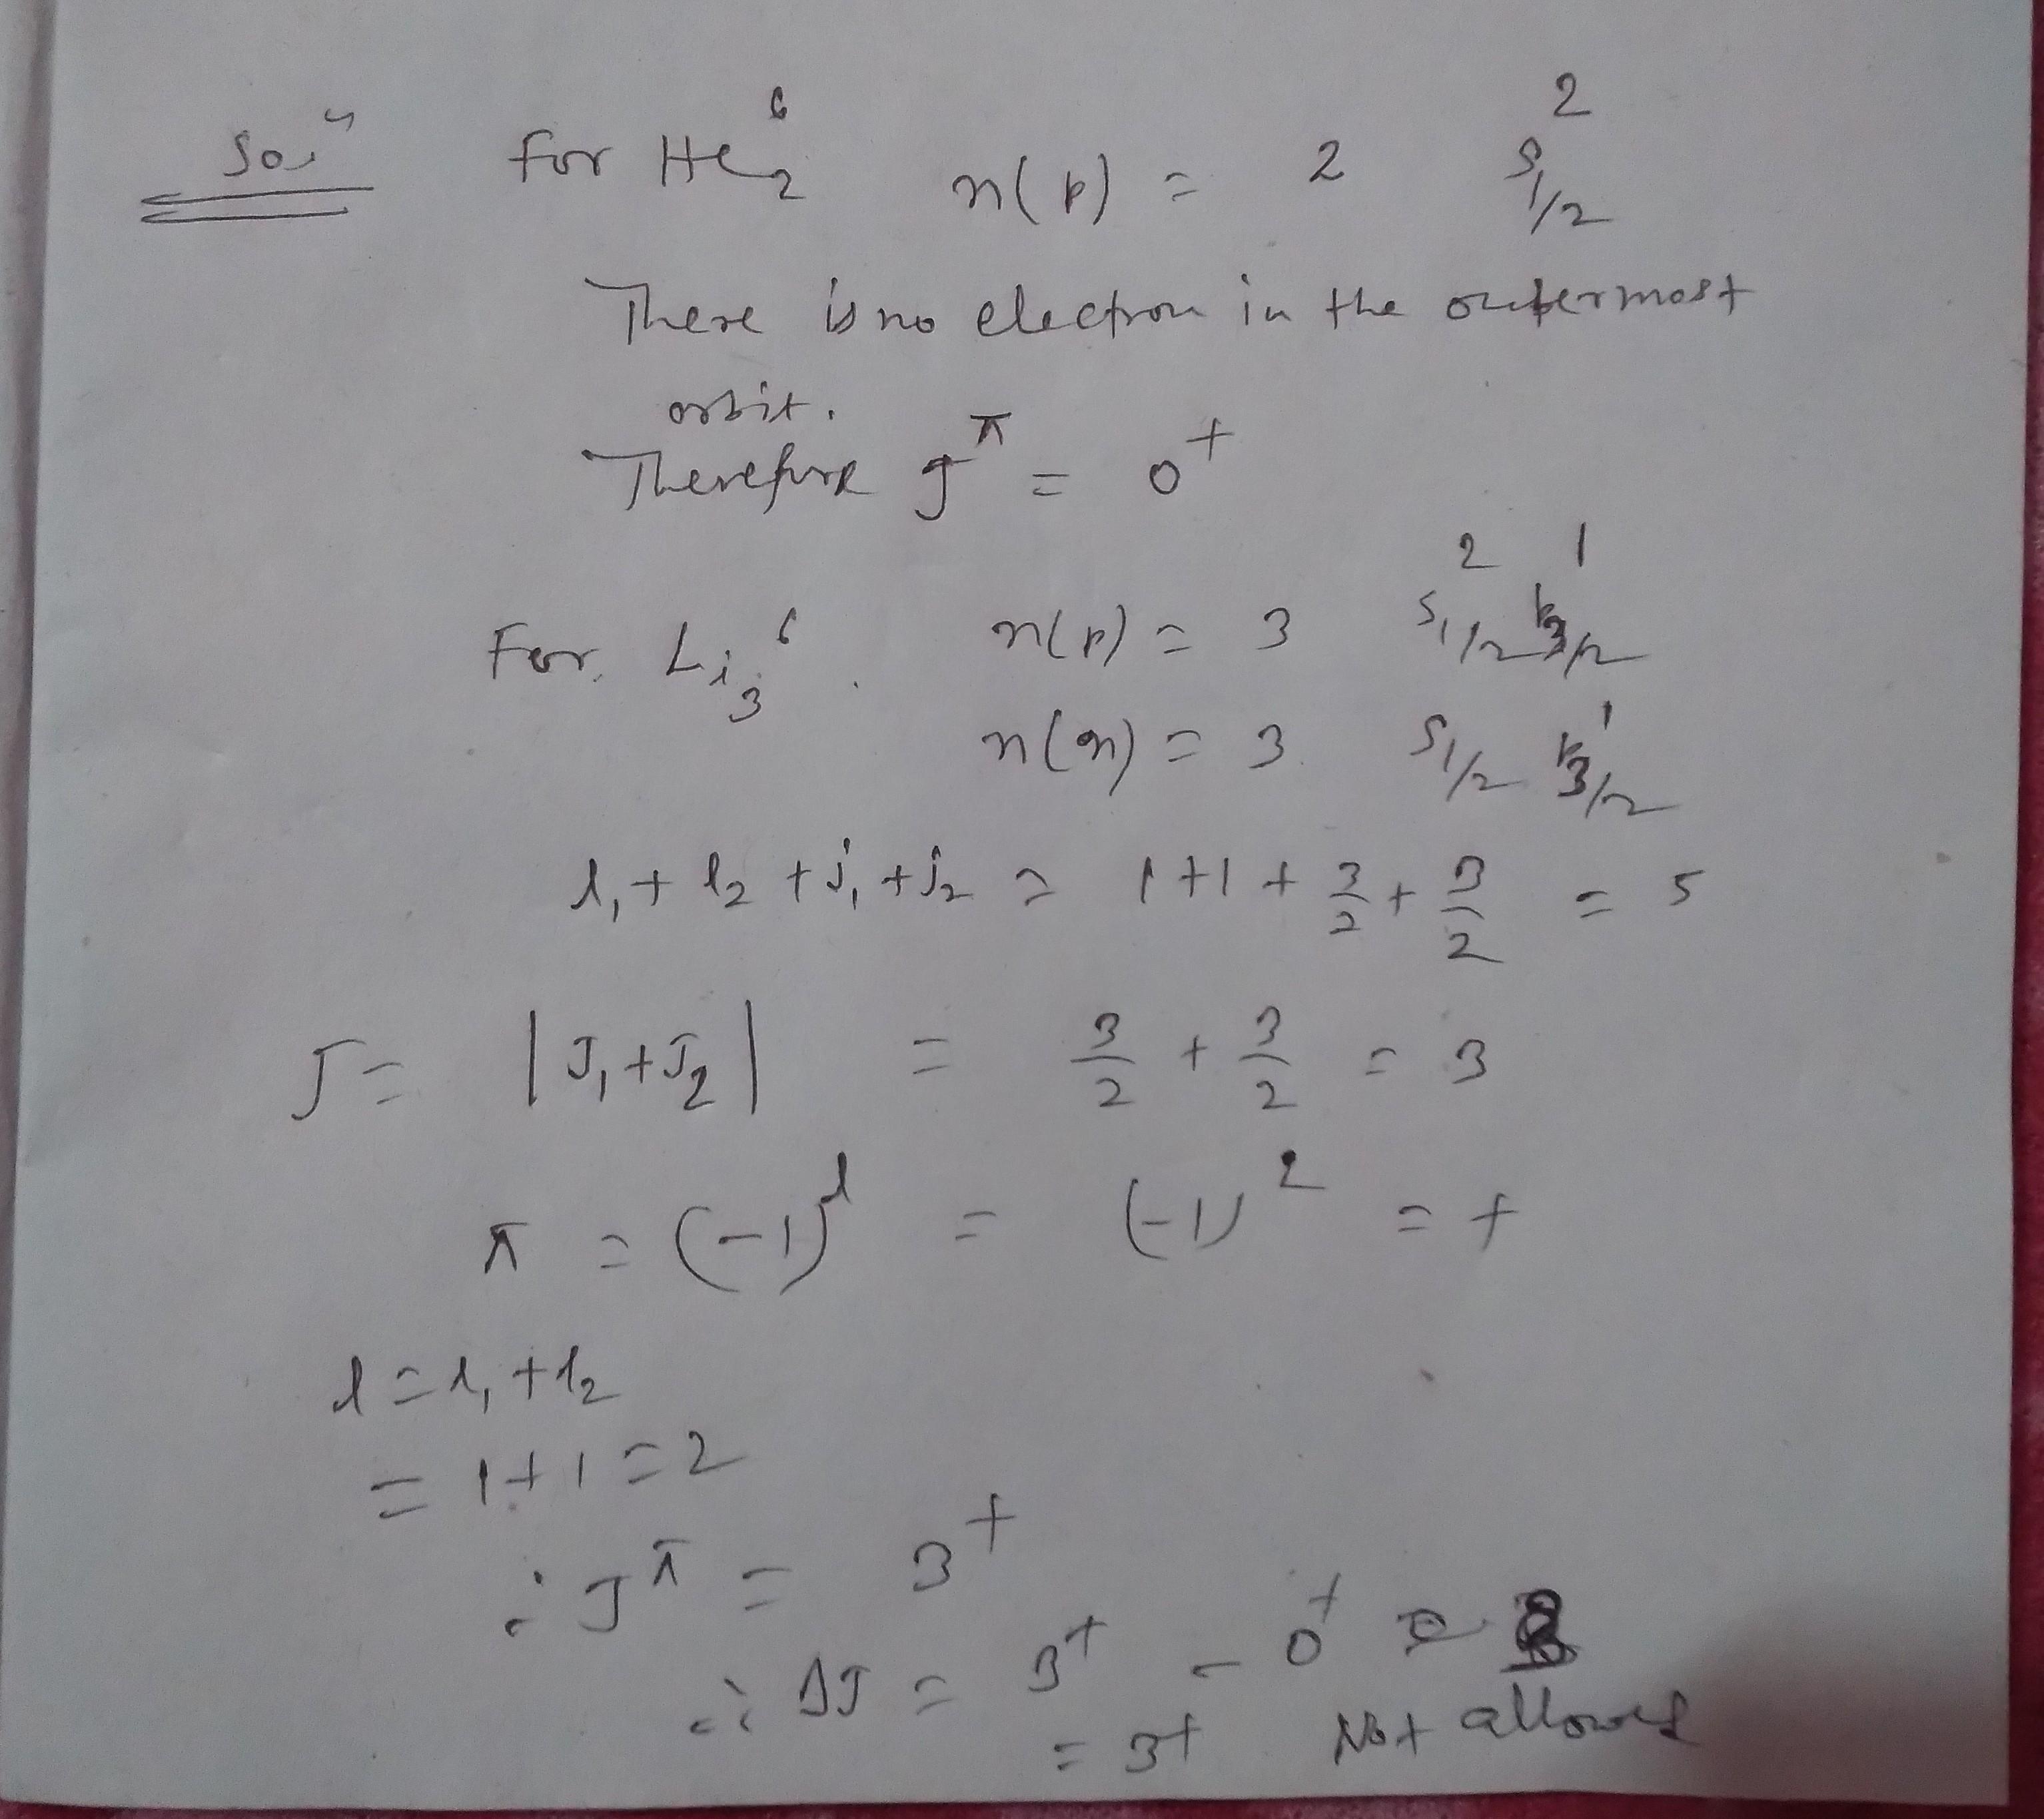 Soln For He₂⁶ n(p) = 2 S₁/₂²
There is no electron in the outermost
orbit.
Therefore J^π = 0⁺
For Li₃⁶. n(p) = 3 S₁/₂² P₃/₂¹
n(n) = 3 S₁/₂ P₃/₂¹
l₁ + l₂ + j₁ + j₂ = 1+1 + 3/2 + 3/2 = 5
J = |J₁+J₂| = 3/2 + 3/2 = 3
π = (-1)^l = (-1)² = +
l = l₁ + l₂
= 1+1 = 2
∴ J^π = 3⁺
∴ ΔJ = 3⁺ - 0⁺ =
= 3⁺ Not allowed